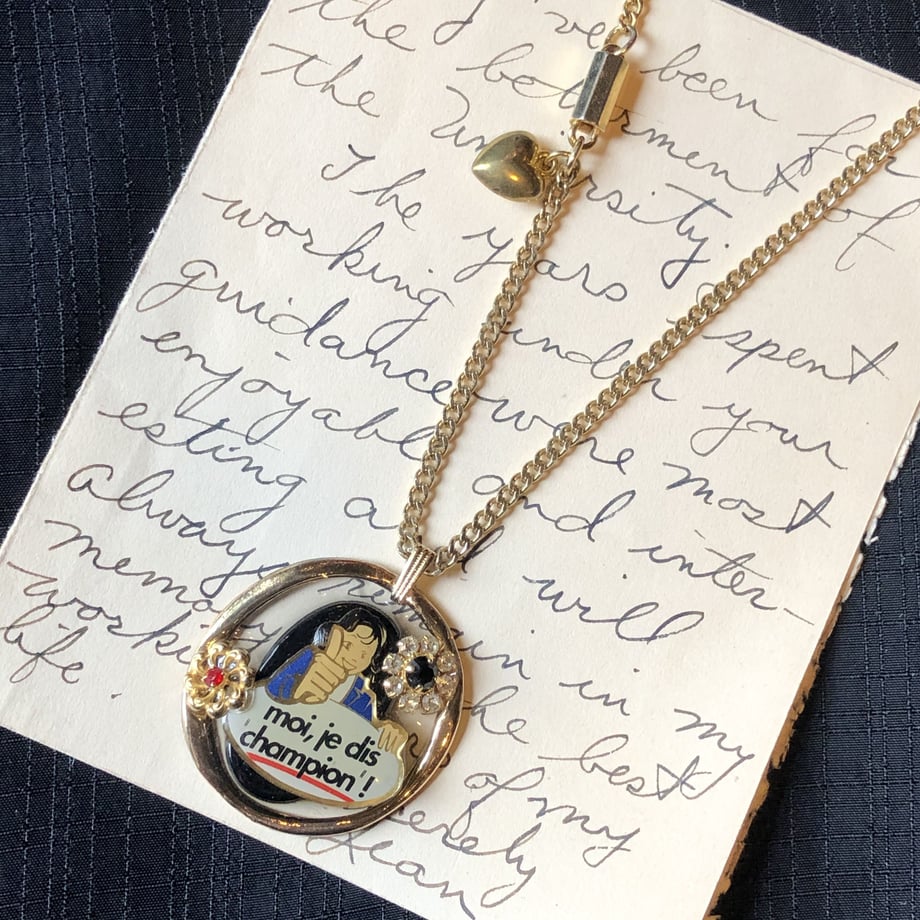 the I've been for
the betterment of
the University.
The years spent
working under your
guidance were most
enjoyable and inter-
esting and will
always remain in my
memory the best
working of my
life.
Sincerely
Jean
moi, je dis
"champion"!